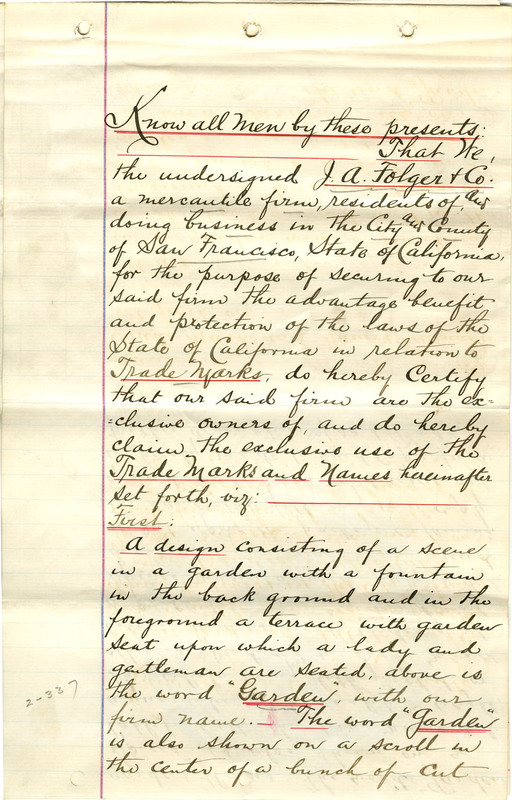 Know all men by these presents:
That We,
the undersigned J. A. Folger & Co.
a mercantile firm, residents of, and
doing business in the City and County
of San Francisco, State of California,
for the purpose of securing to our
said firm the advantage benefit
and protection of the laws of the
State of California in relation to
Trade Marks, do hereby Certify
that our said firm are the ex=
=clusive owners of, and do hereby
claim the exclusive use of the
Trade Marks and Names hereinafter
set forth, viz:
First:
A design consisting of a scene
in a garden with a fountain
in the back ground and in the
foreground a terrace with garden
seat upon which a lady and
gentleman are seated, above is
the word "Garden", with our
firm name. – The word "Garden"
is also shown on a scroll in
the center of a bunch of cut
2-337